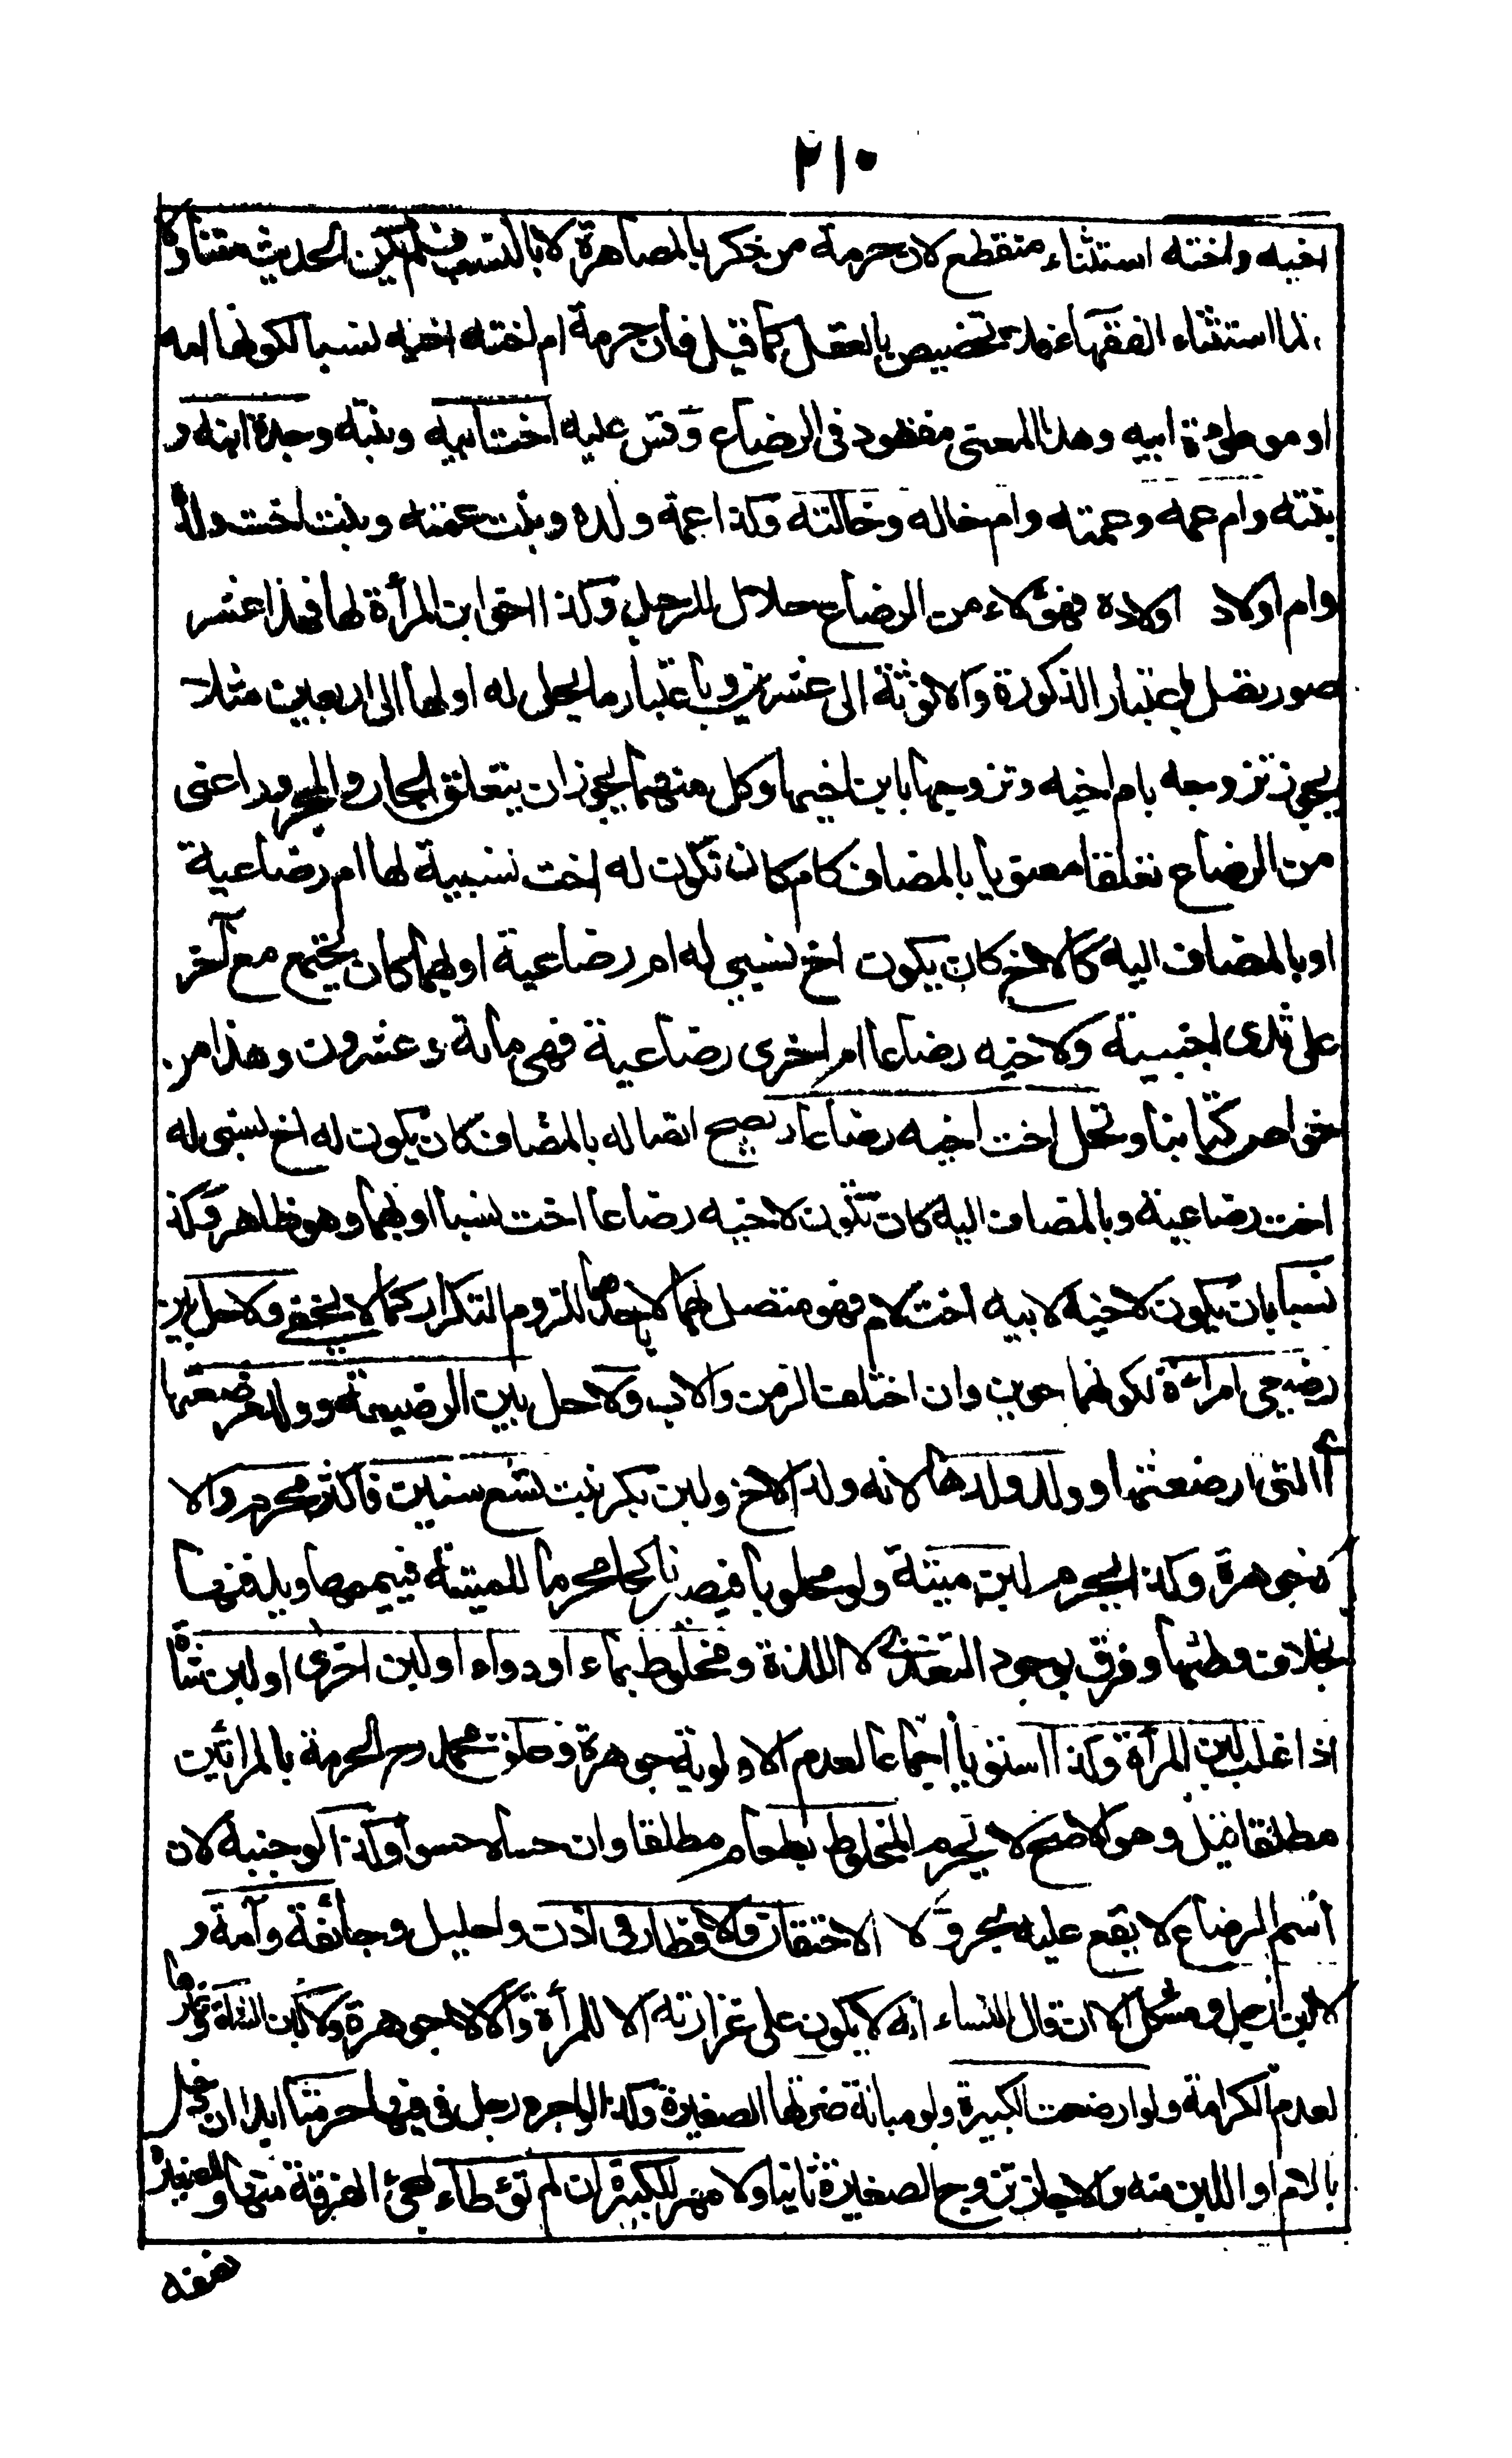 ٢١٠
اخيه واخته استثناء منقطع لان حرمة من ذكر بالمصاهرة لا بالنسب فلم يكن الحديث متناولا
لما استثناه الفقهاء فلا تخصيص بالعقل كما قيل فان حرمة ام اخته اخيه نسبا لكونها امه
او موطوءة ابيه وهذا المعنى مفقود فى الرضاع وقس عليه اخت ابنه وبنته وجدة ابنه و
بنته وام عمه وعمته وام خاله وخالته وكذا عمة ولده وبنت عمته وبنت اخت ولده
وام اولاد اولاده فهؤلاء من الرضاع حلال للرجل وكذا اخو ابن المرأة لها فهذا عشر
صور يصل باعتبار الذكورة والانوثة الى عشرين وباعتبار ما يحل له او لها الى اربعين مثلا
يجوز تزوجه بام اخيه وتزوجها بابن اخيها وكل منهما يجوز ان يتعلق الجار والمجرور اعنى
من الرضاع تعلقا معنويا بالمضاف كام كان تكون له اخت نسبية لها ام رضاعية
او بالمضاف اليه كالاخ كان يكون اخ نسبى له ام رضاعية او بهما كان يجتمع مع آخر
على ثدى اجنبية ولاخيه رضاعا ام اخرى رضاعية فهى مائة وعشرون وهذا من
خواص كتابنا وتحل اخت اخيه رضاعا يصح اتصاله بالمضاف كان يكون له اخ نسبى له
اخت رضاعية وبالمضاف اليه كان تكون لاخيه رضاعا اخت نسبا او بهما وهو ظاهر وكذا
نسبا بان يكون لاخيه لابيه اخت لام فهو متصل بهما لا باحدهما للزوم التكرار كما لا يخفى ولا حل بين
رضيعى امرأة لكونهما اخوين وان اختلف الزمن والاب ولا حل بين الرضيعة وولد مرضعتها
أ التى ارضعتها وولد ولدها لانه ولد الاخ ولبن بكر بنت تسع سنين فاكثر محرم والا
لا جوهرة وكذا يحرم لبن ميتة ولو محلوبا فيصير ناكحها محرما للميتة فييممها ويدفنها
بخلاف وطئها وفرق بوجود التغذى لا اللذة ومخلوط بماء او دواء او لبن اخرى او لبن شاة
اذا غلب لبن المرأة وكذا استويا اجماعا لعدم الاولوية جوهرة وعلق محمد رح الحرمة بالمرأتين
مطلقا قيل وهو الاصح لا يحرم المخلوط بطعام مطلقا وان حساه حسوا وكذا لو جبنه لان
اسم الرضاع لا يقع عليه بحر ولا الاحتقان والاقطار فى اذن واحليل وجائفة وآمة و
لا لبن رجل ومشكل الا ان قال النساء انه لا يكون على غزارته الا للمرأة والا لا جوهرة ولا لبن الشاة وغيرها
لعدم الكرامة ولو ارضعت الكبيرة ولو مبانة ضرتها الصغيرة وكذا لو اوجره رجل فى فيها حرمتا ابدا ان دخل
بالام او اللبن منه والا جاز تزوج الصغيرة ثانيا ولا مهر للكبيرة ان لم توطأ لمجئ الفرقة منها وللصغيرة
نصفه